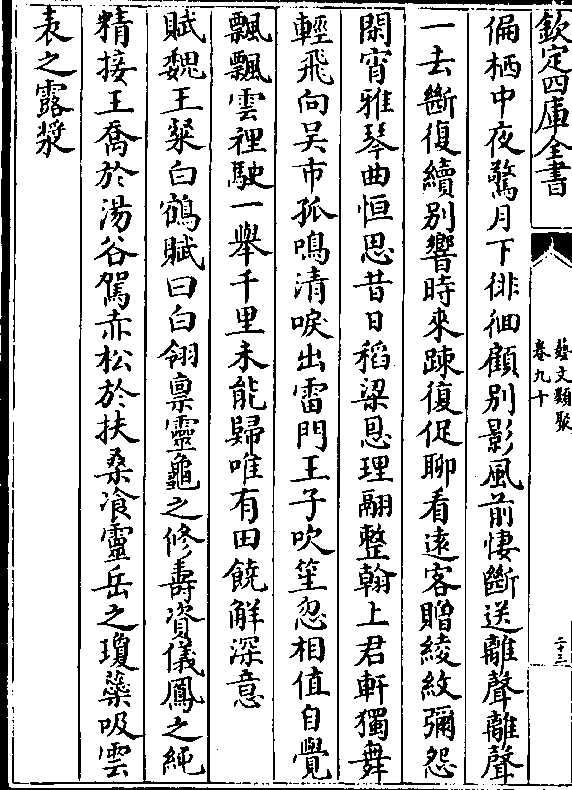 欽定四庫全書
藝文類聚
卷九十
二十三
偏栖中夜驚月下徘徊顧別影風前悽斷送離聲離聲
一去斷復續別響時來踈復促聊看逺客贈綾紋彌怨
閑宵雅琴曲恒思昔日稻粱恩理翮整翰上君軒獨舞
輕飛向吴市孤鳴清唳出雷門王子吹笙忽相值自覺
飄飄雲裡駛一舉千里未能歸唯有田饒解深意
賦魏王粲白鶴賦曰白翎禀靈龜之修壽資儀鳳之純
精接王喬於湯谷駕赤松於扶桑飡靈岳之瓊蘂吸雲
表之露漿